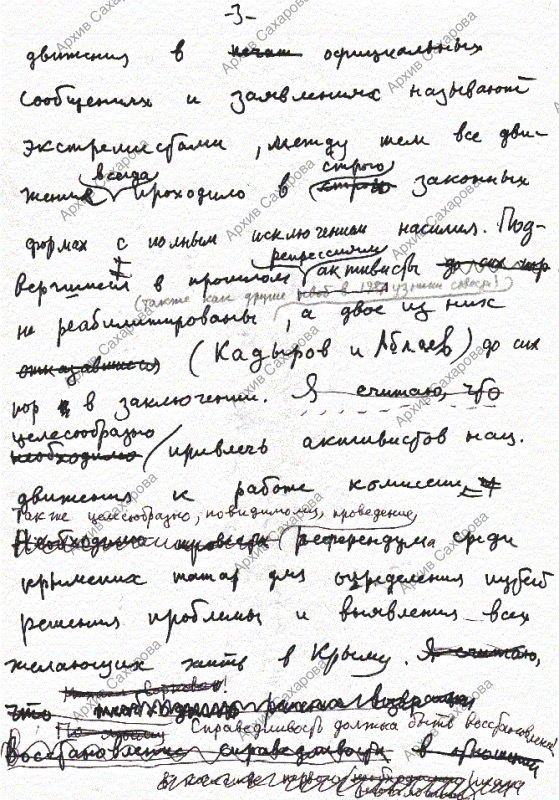 -3-
движения в печати официальных
сообщениях и заявлениях называют
экстремистами, между тем все дви-
всегда строго
жение проходило в строго законных
формах с полным исключением насилия. Под-
репрессиям
вергшиеся в прошлом активисты до сих пор
(также как другие освоб в 1987 узники совести)
не реабилитированы, а двое из них
отказавшиеся (Кадыров и Аблаев) до сих
пор в заключении. Я считаю, что
целесообразно
необходимо привлечь активистов нац.
движения к работе комиссии.
Также целесообразно, по-видимому, проведение
Необходимо провести референдума среди
крымских татар для определения путей
решения проблемы и выявления всех
желающих жить в Крыму. Я считаю,
что
Справедливость должна быть восстановлена!
Восстановление справедливости в отношении